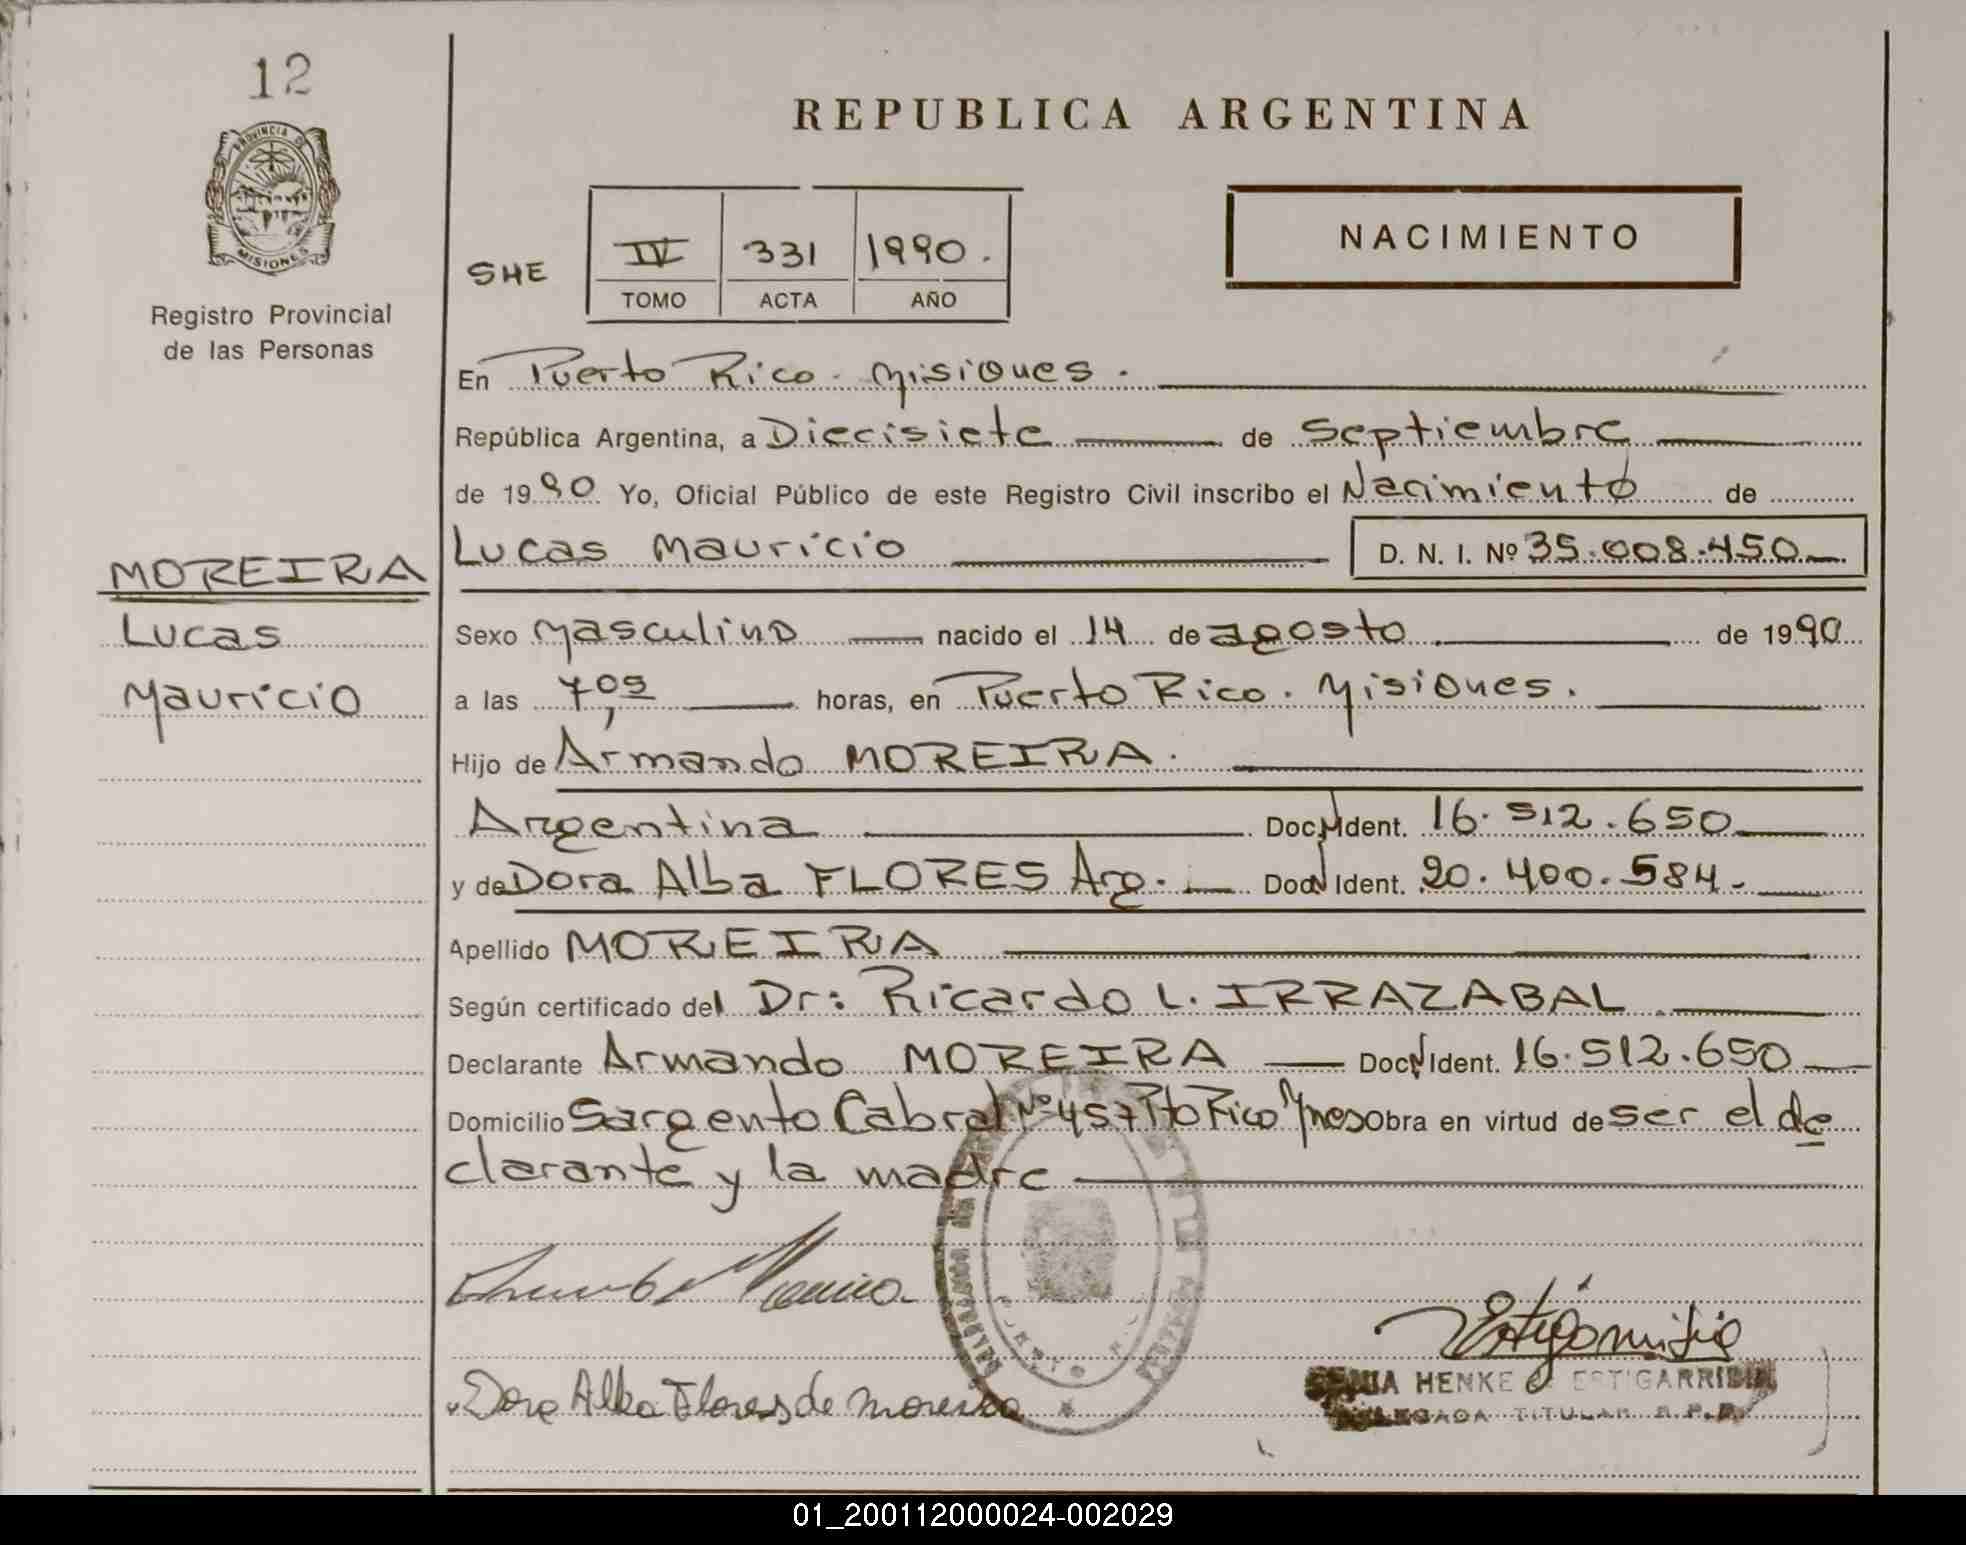 12
PROVINCIA DE
MISIONES
Registro Provincial
de las Personas
MOREIRA
Lucas
Mauricio
REPUBLICA ARGENTINA
NACIMIENTO
SHE
IV 331 1990.
TOMO ACTA AÑO
En Puerto Rico. Misiones.
República Argentina, a Diecisiete de Septiembre
de 1990 Yo, Oficial Público de este Registro Civil inscribo el Nacimiento de
Lucas Mauricio D. N. I. Nº 35.008.450
Sexo Masculino nacido el 14 de agosto de 1990
a las 7,05 horas, en Puerto Rico. Misiones.
Hijo de Armando MOREIRA.
Argentina Doc. N Ident. 16.512.650
y de Dora Alba FLORES Arg. Doc. N Ident. 20.400.584.
Apellido MOREIRA
Según certificado del Dr: Ricardo L. IRRAZABAL
Declarante Armando MOREIRA Doc. N Ident. 16.512.650
Domicilio Sargento Cabral Nº 457 Pto Rico Mnes Obra en virtud de ser el de
clarante y la madre
Dora Alba Flores de Moreira
HENKE ESTIGARRIBIA
DELEGADA TITULAR R.P.P.
01_200112000024-002029